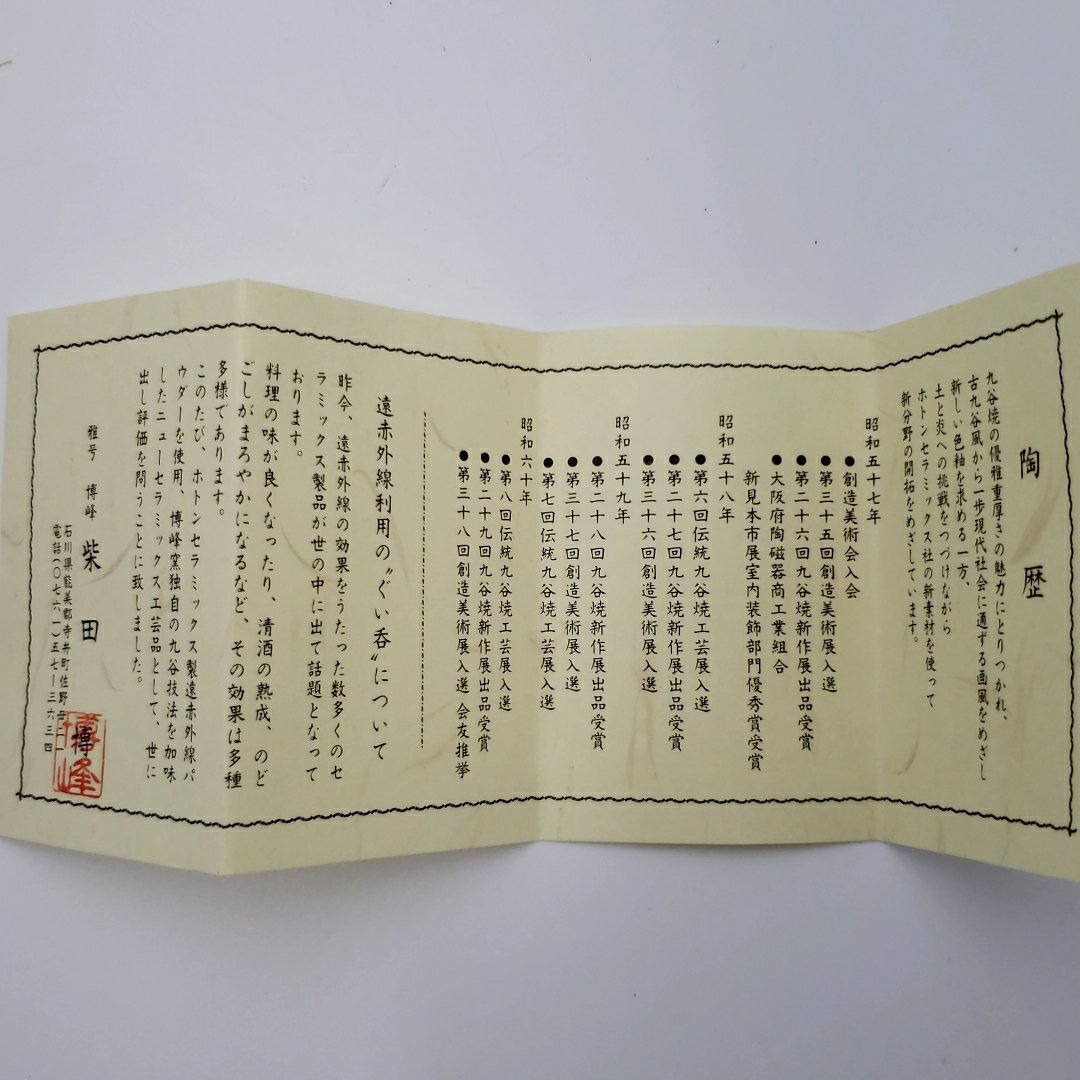 陶歴
九谷焼の優雅重厚さの魅力にとりつかれ、
古九谷風から一歩現代社会に通ずる画風をめざし
新しい色釉を求める一方、
土と炎への挑戦をつづけながら
ホトンセラミックス社の新素材を使って
新分野の開拓をめざしています。
昭和五十七年
●創造美術会入会
●第三十五回創造美術展入選
●第二十六回九谷焼新作展出品受賞
●大阪府陶磁器商工業組合
新見本市展室内装飾部門優秀賞受賞
昭和五十八年
●第六回伝統九谷焼工芸展入選
●第二十七回九谷焼新作展出品受賞
●第三十六回創造美術展入選
昭和五十九年
●第二十八回九谷焼新作展出品受賞
●第三十七回創造美術展入選
●第七回伝統九谷焼工芸展入選
昭和六十年
●第八回伝統九谷焼工芸展入選
●第二十九回九谷焼新作展出品受賞
●第三十八回創造美術展入選 会友推挙
遠赤外線利用の〝ぐい呑〟について
昨今、遠赤外線の効果をうたった数多くのセ
ラミックス製品が世の中に出て話題となって
おります。
料理の味が良くなったり、清酒の熟成、のど
ごしがまろやかになるなど、その効果は多種
多様であります。
このたび、ホトンセラミックス製遠赤外線パ
ウダーを使用、博峰窯独自の九谷技法を加味
したニューセラミックス工芸品として、世に
出し評価を問うことに致しました。
雅号 博峰 柴田 博
石川県能美郡寺井町佐野
電話(〇七六一)五七ー三六三四
博峰